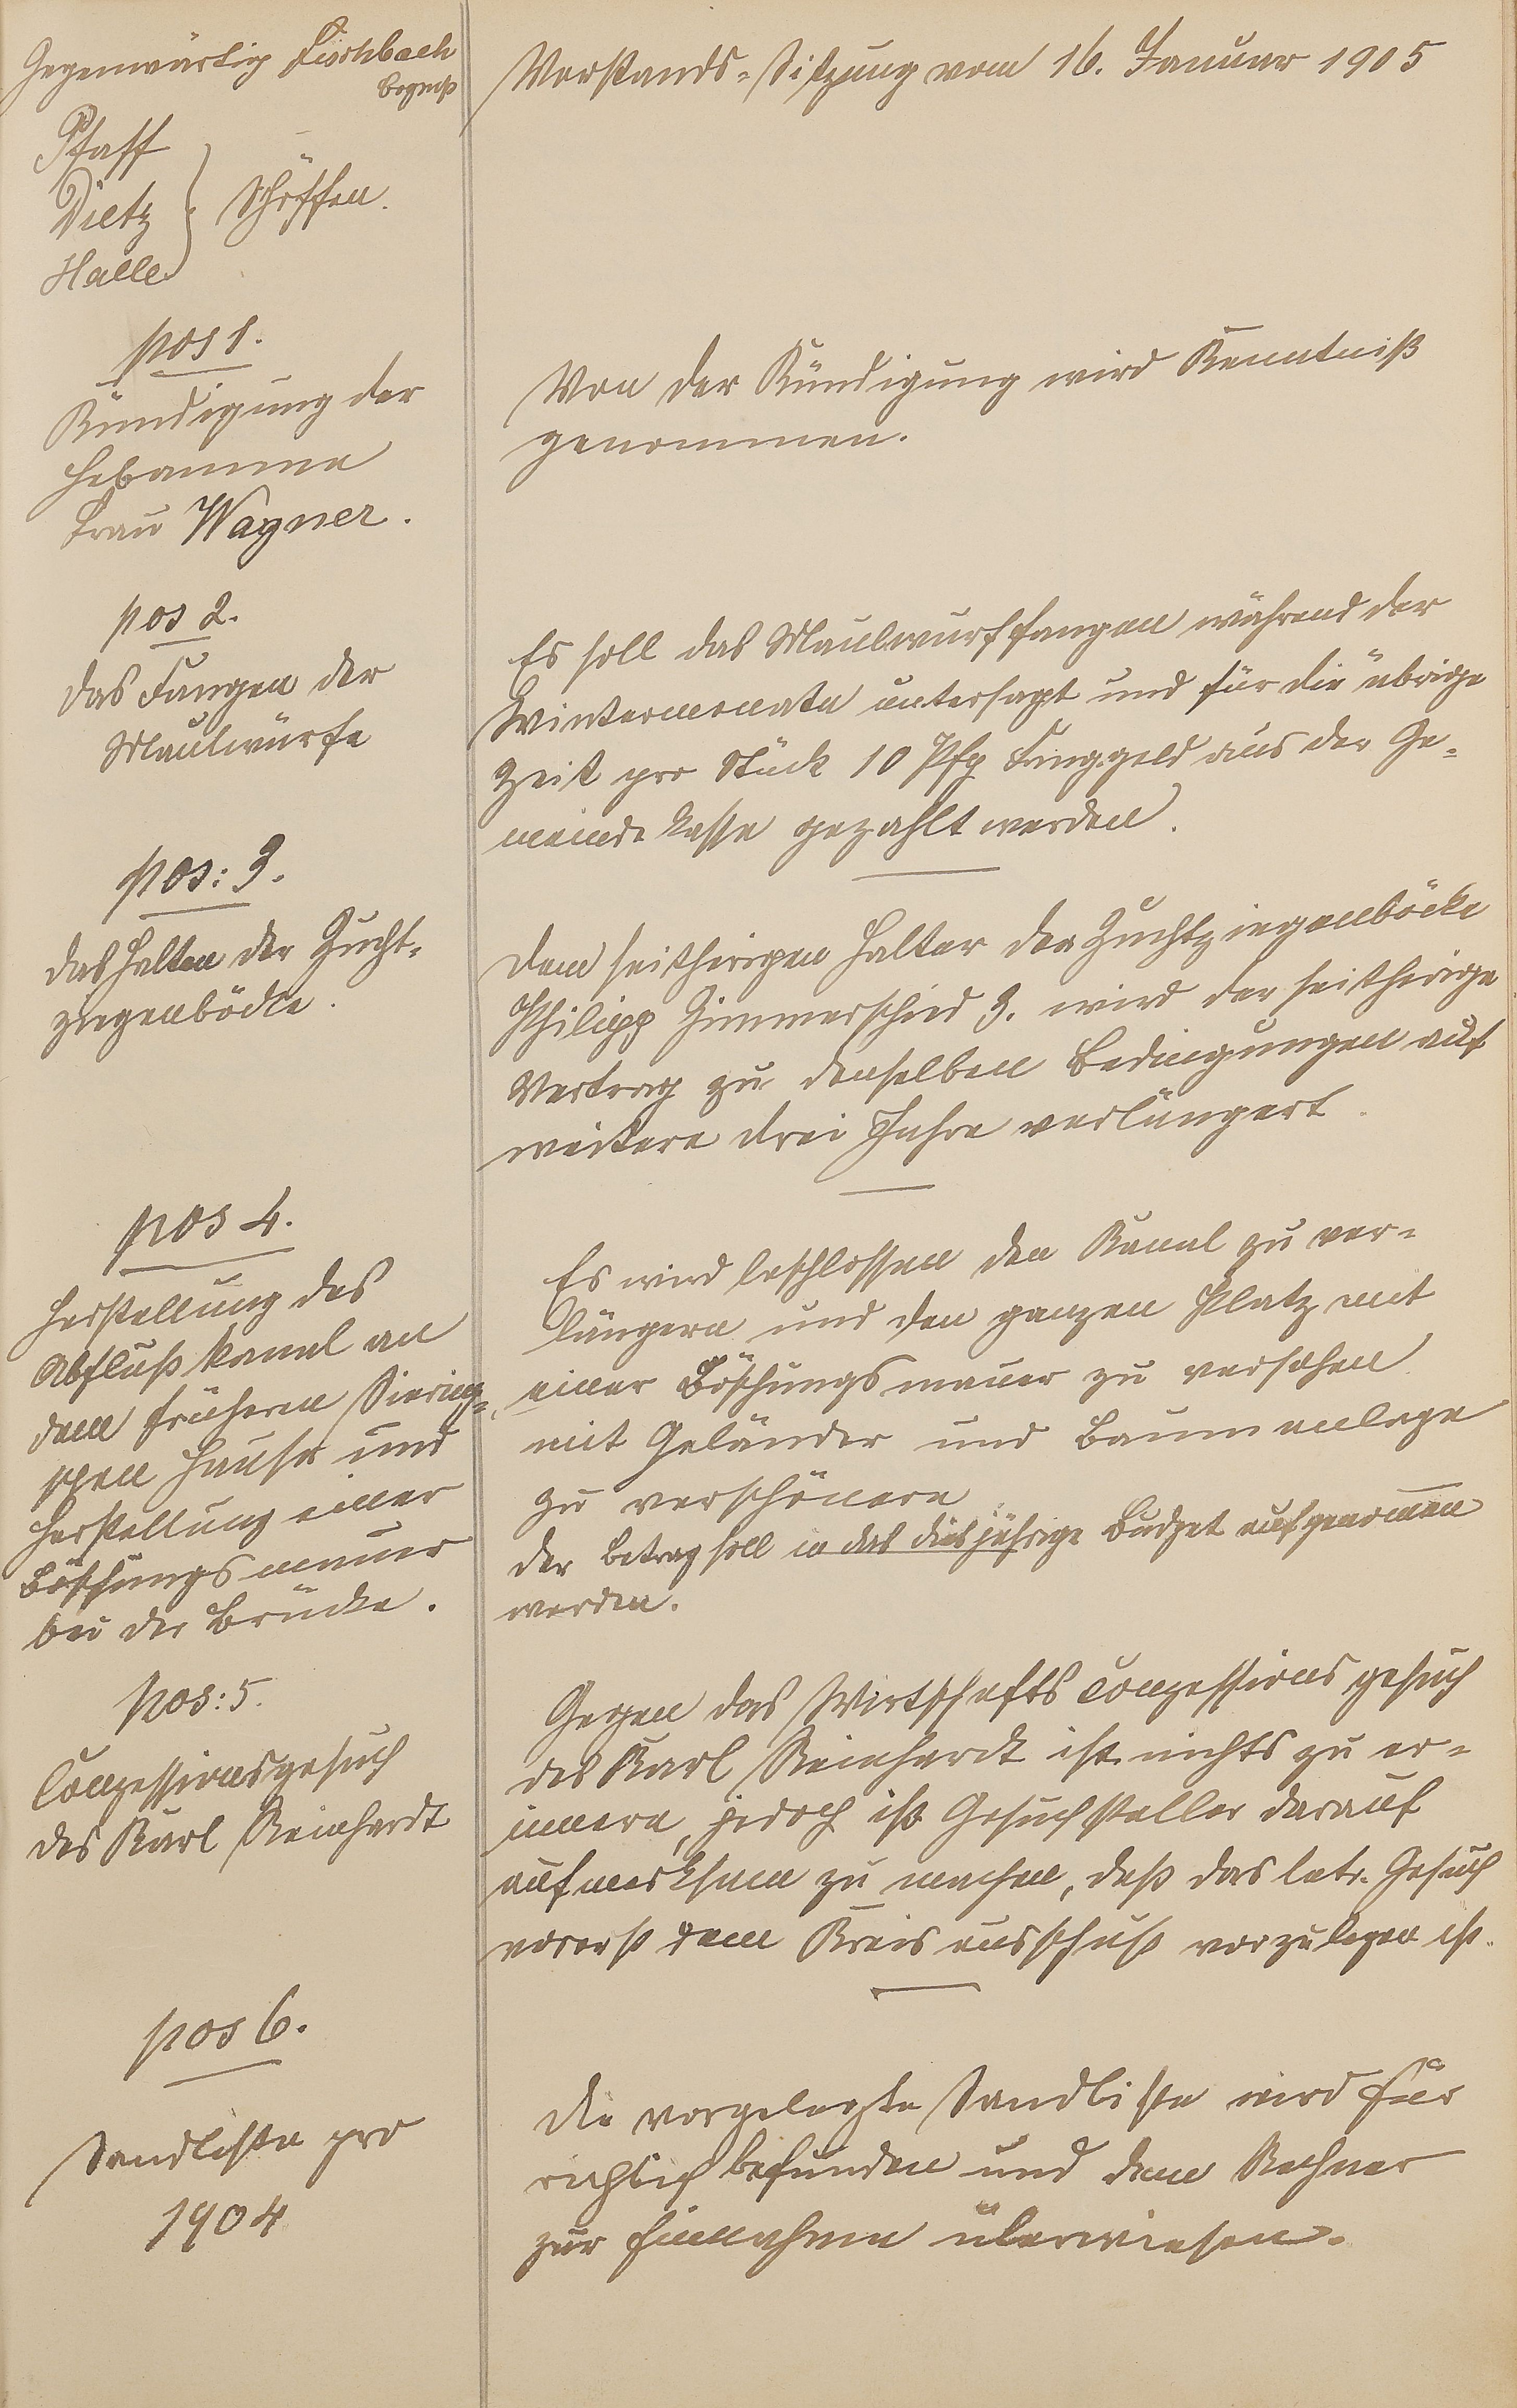 Gegenwärtig Fischbach
Brgmstr
Pfaff
Dietz
Halle
Schöffen.
Vorstands-Sitzung vom 16. Januar 1905
pos 1.
Kündigung der
Hebamme
Frau Wagner.
Von der Kündigung wird Kenntniß
genommen.
pos 2.
das Fangen der
Maulwürfe
Es soll das Maulwurffangen während der
Wintermonate untersagt und für die übrige
Zeit pro Stück 10 Pfg Fanggeld aus der Ge-
meindekasse gezahlt werden.
pos: 3.
das Halten der Zucht-
ziegenböcke.
Dem seitherigen Halter der Zuchtziegenböcke
Philipp Zimmerschied 3. wird der seitherige
Vertrag zu denselben Bedingungen auf
weitere drei Jahre verlängert.
pos 4.
Herstellung des
Abflußkanal an
dem früheren
Hause und
Herstellung einer
Böschungsmauer
bei der Brücke.
Es wird beschlossen den Kanal zu ver-
längern und den ganzen Platz mit
einer Böschungsmauer zu versehen
mit Geländer und Baumanlage
zu verschönern
der Betrag soll in das diesjährige Budget aufgenommen
werden.
pos: 5.
Conzessionsgesuch
des Karl Reinhardt
Gegen das Wirtschafts Conzessionsgesuch
des Karl Reinhardt ist nichts zu er-
innern, jedoch ist Gesuchsteller darauf
aufmerksam zu machen, daß das betr. Gesuch
vorerst dem Kreisausschuß vorzulegen ist.
pos 6.
Sandliste pro
1904
Die vorgelegte Sandliste wird für
richtig befunden und dem Rechner
zur Einnahme überwiesen.